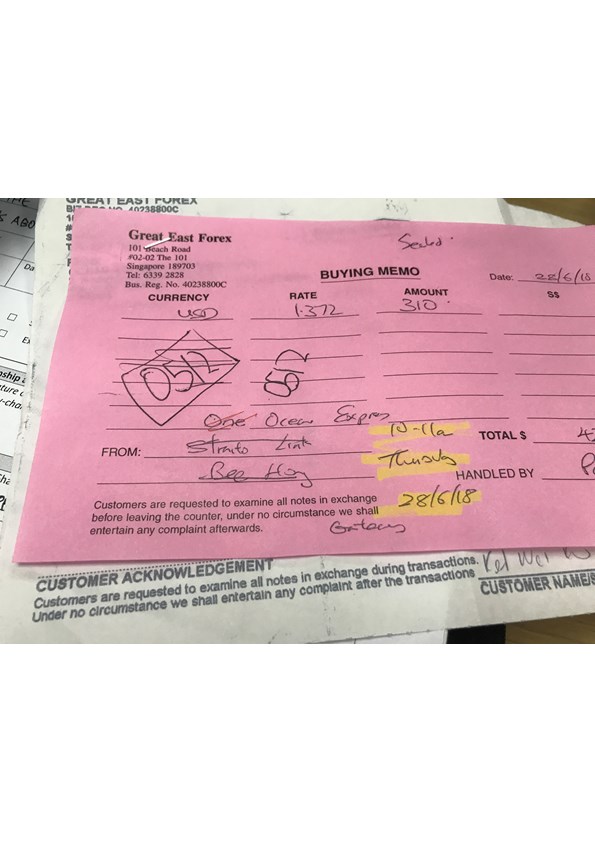 GREAT EAST FOREX
40238800C
Great East Forex
101 Beach Road
#02-02 The 101
Singapore 189703
Tel: 6339 2828
Bus. Reg. No. 40238800C
BUYING MEMO
Date: 28/6/18
CURRENCY RATE AMOUNT S$
USD 1.372 310
0512 0512
One Ocean Expres
10-11a TOTAL $
FROM: Straits Link
Thursday
Bee Hoy HANDLED BY
28/6/18
Customers are requested to examine all notes in exchange
before leaving the counter, under no circumstance we shall
entertain any complaint afterwards.
CUSTOMER ACKNOWLEDGEMENT
Customers are requested to examine all notes in exchange during transactions.
Under no circumstance we shall entertain any complaint after the transactions
CUSTOMER NAME/S